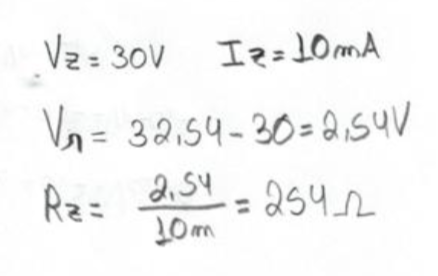 Vz = 30V Iz = 10mA
Vr = 32,54 - 30 = 2,54V
Rz = 2,54 / 10m = 254 Ω